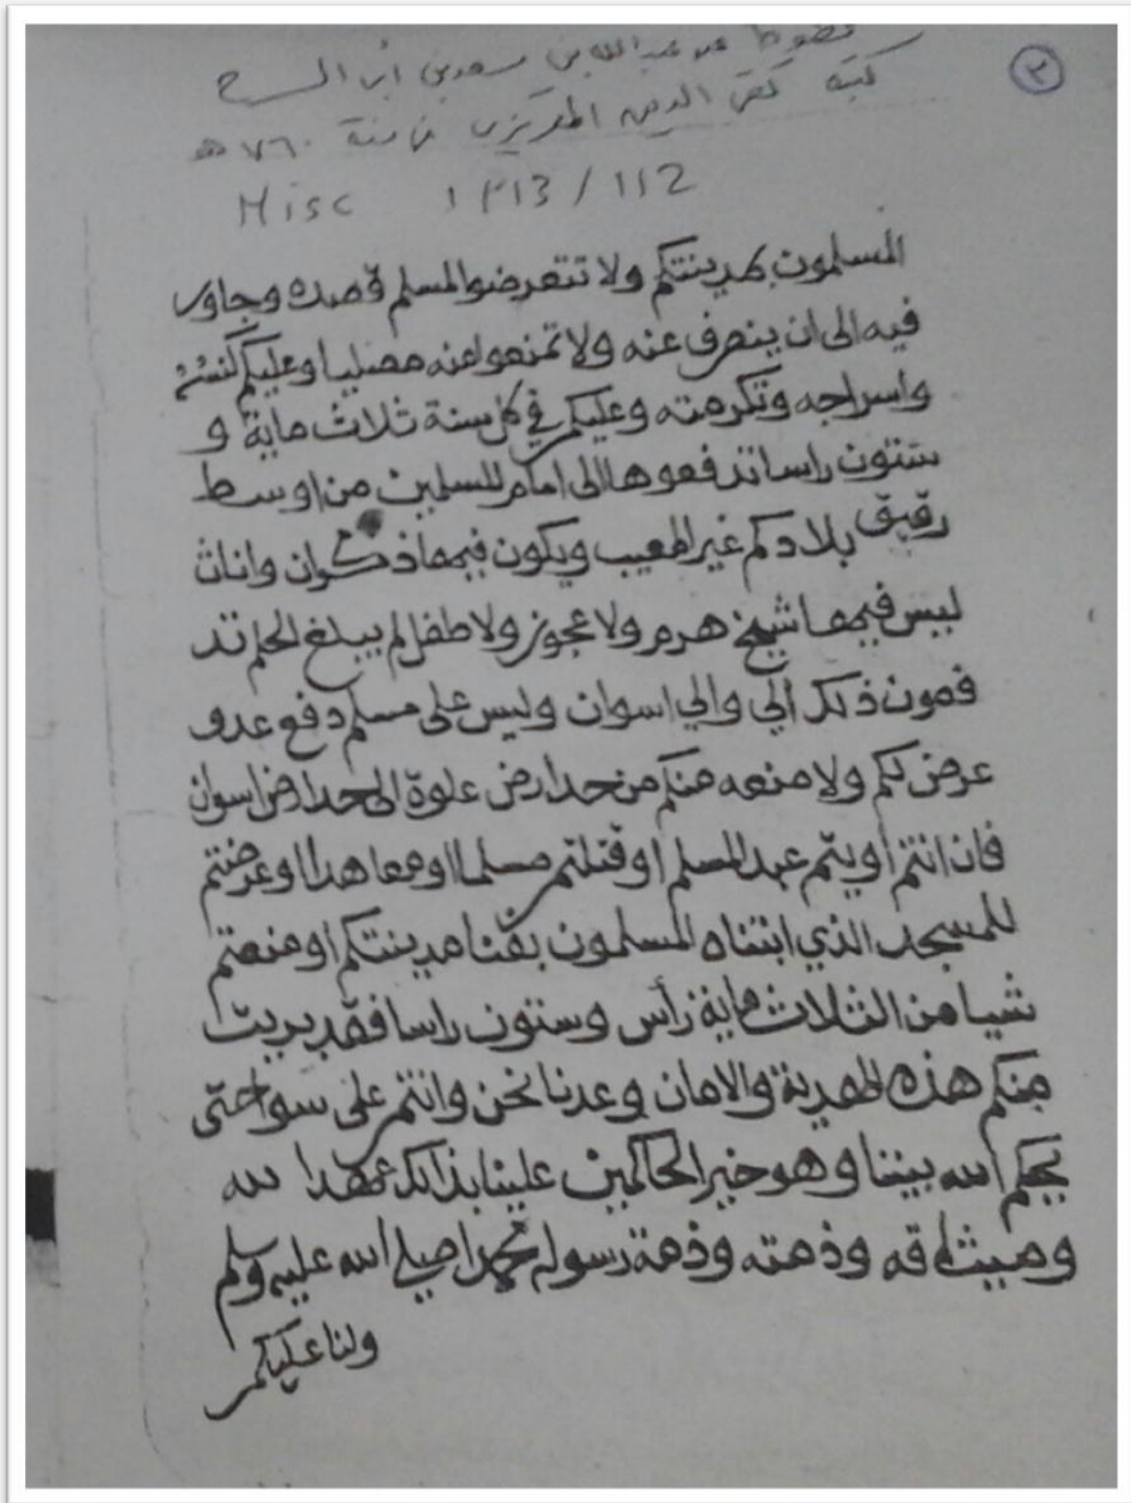 ٢
مخطوط عهد عبد الله بن سعد بن أبي السرح
كتبه تقى الدين المقريزى فى سنة ٧٦٠ هـ
Misc ١٣١٣ / ١١٢
المسلمون بمدينتكم ولا تتعرضوا لمسلم قصده وجاور
فيه الى ان ينصرف عنه ولا تمنعوا عنه مصليا وعليكم كنسه
واسراجه وتكرمته وعليكم في كل سنة ثلاث ماية و
ستون راسا تدفعوها الى امام المسلمين من اوسط
رقيق بلادكم غير المعيب ويكون فيها ذكران واناث
ليس فيها شيخ هرم ولا عجوز ولا طفل لم يبلغ الحلم تد
فعون ذلك الي والي اسوان وليس على مسلم دفع عدو
عرض لكم ولا منعه منكم من حد ارض علوة الى حد ارض اسوان
فان انتم اويتم عبد المسلم او قتلتم مسلما او معاهدا او عرضتم
للمسجد الذي ابتناه المسلمون بفنا مدينتكم او منعتم
شيا من الثلاث ماية رأس وستون راسا فقد بريت
منكم هذه الهدنة والامان وعدنا نحن وانتم على سوا حتى
يحكم الله بيننا وهو خير الحاكمين علينا بذالك عهدا لله
وميثاقه وذمته وذمة رسوله محمدا صلى الله عليه وسلم
ولنا عليكم